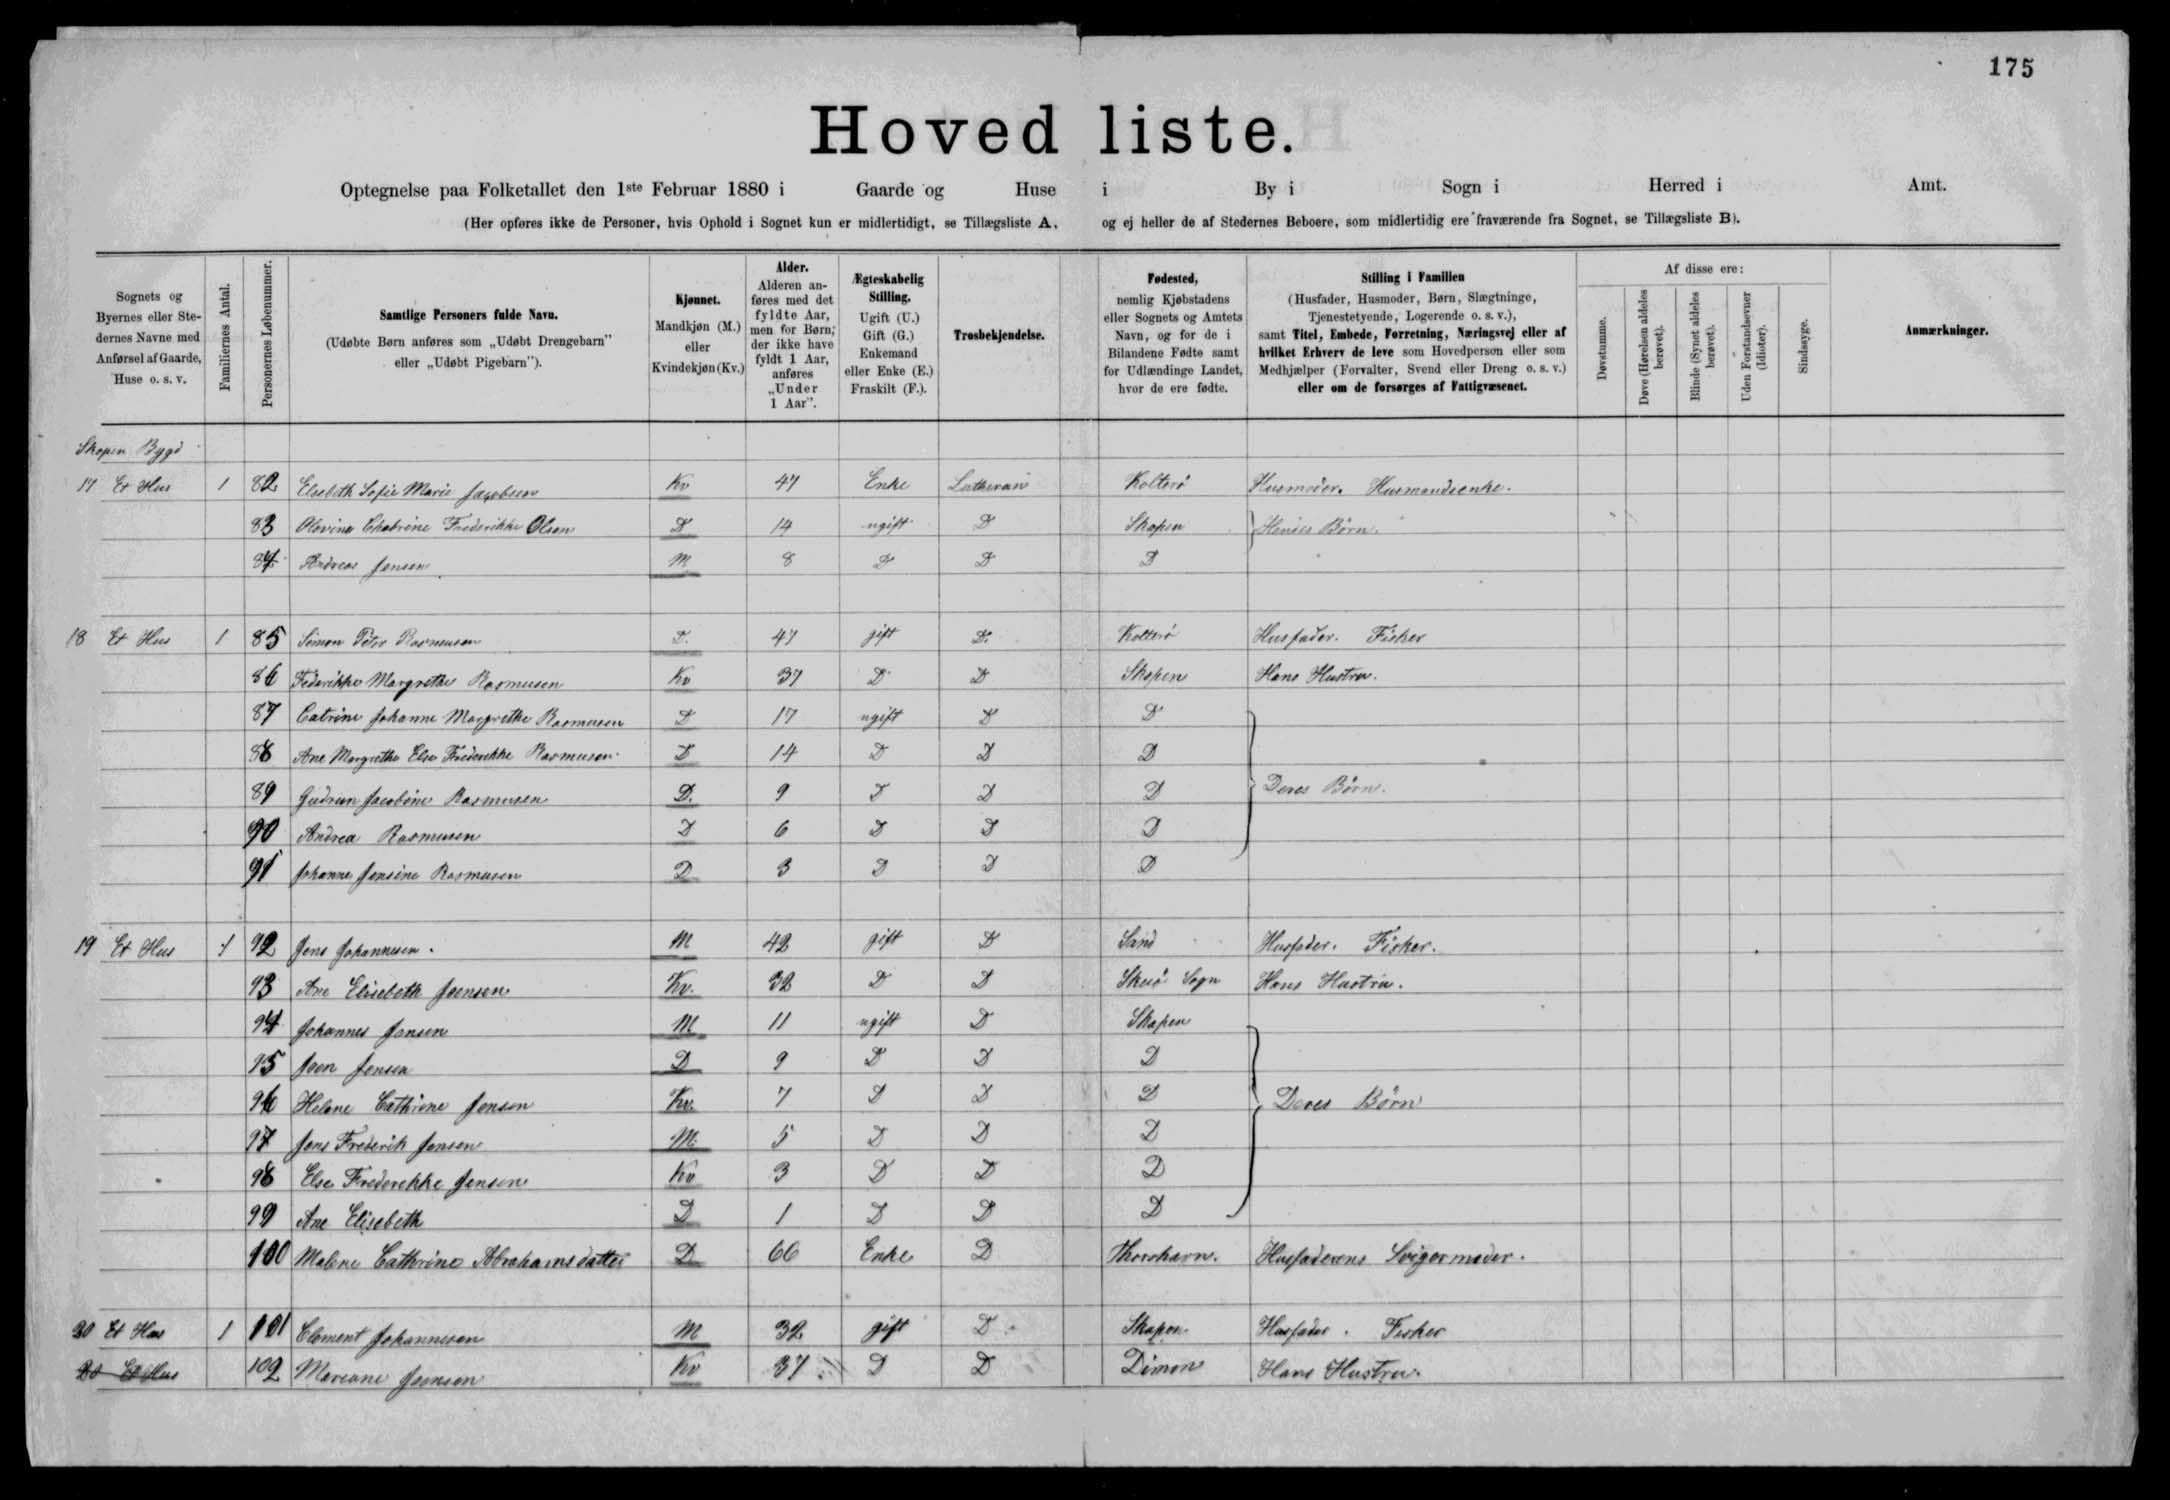 175
Hovedliste.
Optegnelse paa Folketallet den 1ste Februar 1880 i Gaarde og Huse i By i Sogn i Herred i Amt.
(Her opføres ikke de Personer, hvis Ophold i Sognet kun er midlertidigt, se Tillægsliste A, og ej heller de af Stedernes Beboere, som midlertidig ere fraværende fra Sognet, se Tillægsliste B).
Sognets og Byernes eller Stedernes Navne med Anførsel af Gaarde, Huse o. s. v.
Familiernes Antal.
Personernes Løbenummer.
Samtlige Personers fulde Navn.
(Udøbte Børn anføres som „Udøbt Drengebarn” eller „Udøbt Pigebarn”).
Kjønnet.
Mandkjøn (M.) eller Kvindekjøn (Kv.)
Alder.
Alderen anføres med det fyldte Aar, men for Børn, der ikke have fyldt 1 Aar, anføres „Under 1 Aar”.
Ægteskabelig Stilling.
Ugift (U.) Gift (G.) Enkemand eller Enke (E.) Fraskilt (F.).
Trosbekjendelse.
Fødested,
nemlig Kjøbstadens eller Sognets og Amtets Navn, og for de i Bilandene Fødte samt for Udlændinge Landet, hvor de ere fødte.
Stilling i Familien
(Husfader, Husmoder, Børn, Slægtninge, Tjenestetyende, Logerende o. s. v.), samt Titel, Embede, Forretning, Næringsvej eller af hvilket Erhverv de leve som Hovedperson eller som Medhjælper (Forvalter, Svend eller Dreng o. s. v.) eller om de forsørges af Fattigvæsenet.
Af disse ere:
Døvstumme.
Døve (Hørelsen aldeles berøvet).
Blinde (Synet aldeles berøvet).
Uden Forstandsevner (Idioter).
Sindssyge.
Anmærkninger.
Skopen Bygd
17 Et Hus 1 82 Elsebeth Sofie Marie Jacobsen Kv 47 Enke Lutheran Kolterö Husmoder. Husmandsenke.
83 Olevine Chatrine Frederikke Olsen D 14 ugift D Skopen Hendes Börn.
84 Andreas Jensen M 8 D D D
18 Et Hus 1 85 Simon Peter Rasmusen D. 47 gift D. Kolterö Husfader. Fisker
86 Federikke Margrethe Rasmusen Kv 37 D D Skopen Hans Hustru.
87 Catrine Johanne Margrethe Rasmusen D 17 ugift D D
88 Ane Margrethe Else Frederikke Rasmusen D 14 D D D
89 Gudrun Jacobine Rasmusen D. 9 D D D Deres Börn.
90 Andrea Rasmusen D 6 D D D
91 Johanne Jensine Rasmusen D 3 D D D
19 Et Hus 1 92 Jens Johannesen. M 42 gift D Sand Husfader. Fisker.
93 Ane Elisebeth Joensen Kv. 32 D D Skuö Sogn Hans Hustru.
94 Johannes Jensen M 11 ugift D Skopen
95 Joen Jensen D 9 D D D
96 Helene Cathrine Jensen Kv. 7 D D D Deres Börn
97 Jens Frederik Jensen M. 5 D D D
98 Else Frederekke Jensen Kv 3 D D D
99 Ane Elisebeth D 1 D D D
100 Malene Cathrine Abrahamsdatter D 66 Enke D Thorshavn. Husfaderens Svigermoder.
20 Et Hus 1 101 Clement Johannesen M 32 gift D Skopen Husfader. Fisker
20 Et Hus 102 Mareane Joensen Kv 37 D D Dimon Hans Hustru.